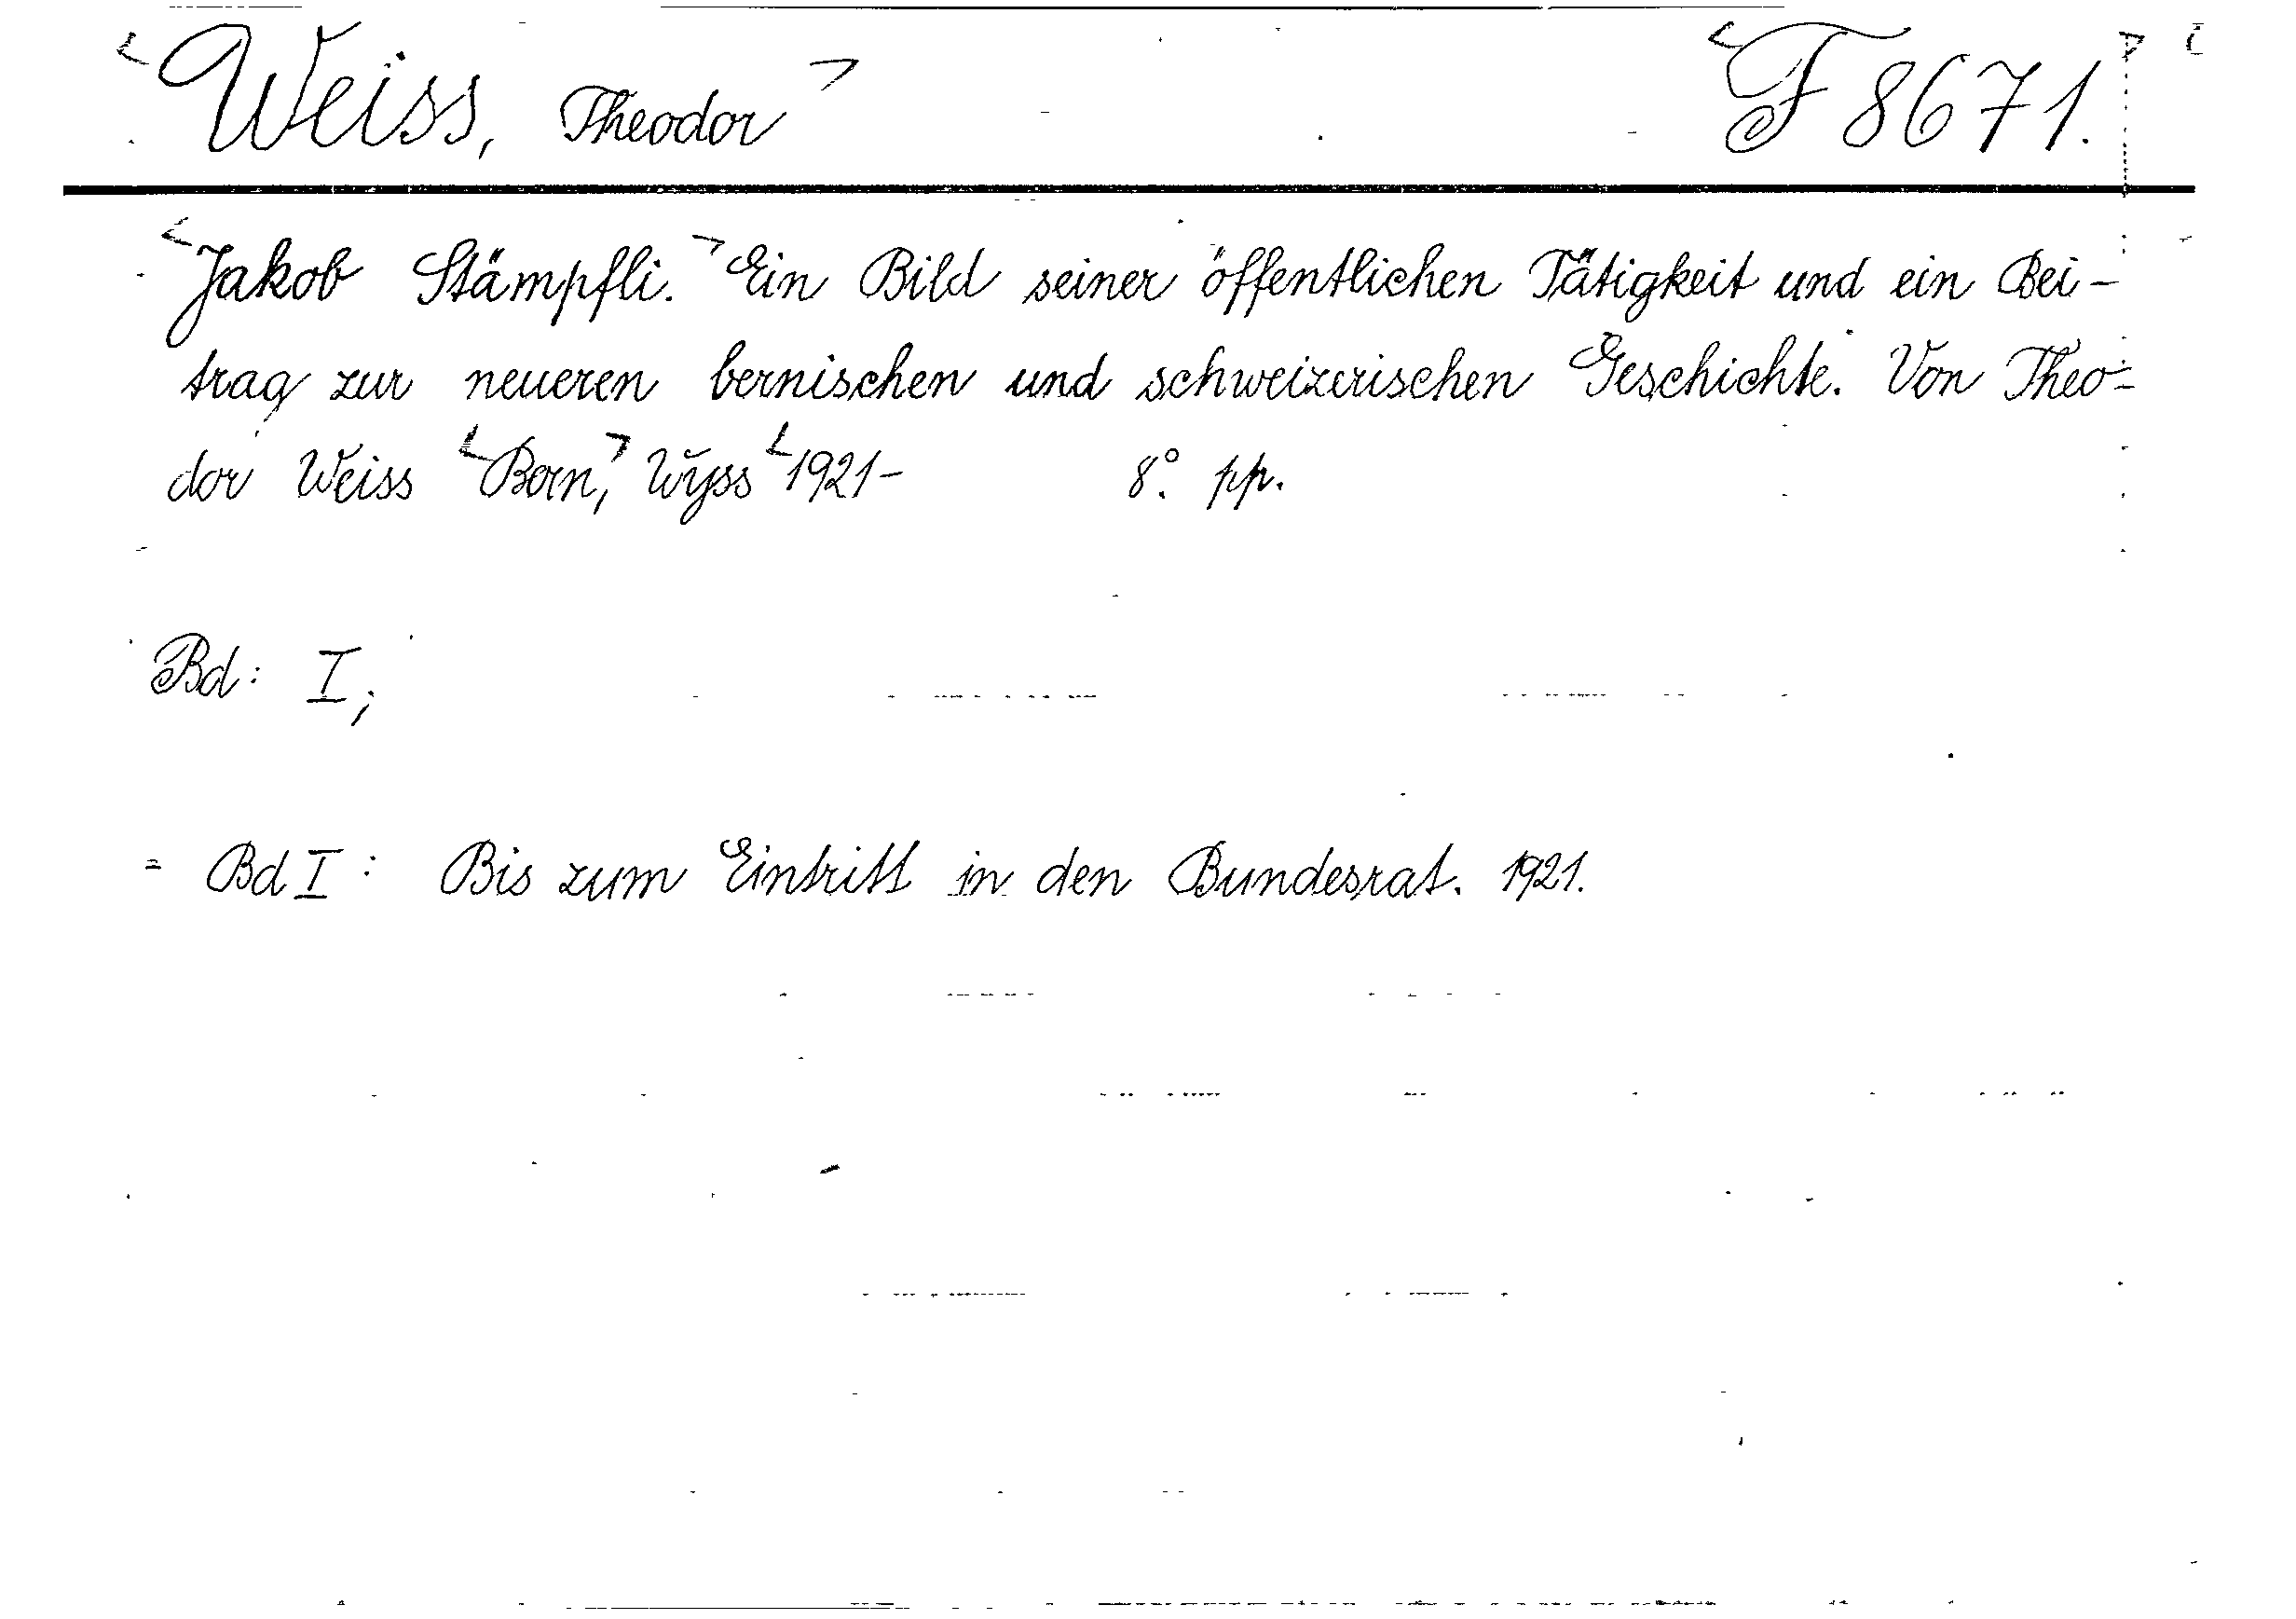 Weiss, Theodor F 8671.
Jakob Stämpfli. Ein Bild seiner öffentlichen Tätigkeit und ein Bei-
trag zur neueren bernischen und schweizerischen Geschichte. Von Theo-
dor Weiss Bern, Wyss 1921- 8°. pp.
Bd: I;
= Bd I: Bis zum Eintritt in den Bundesrat. 1921.